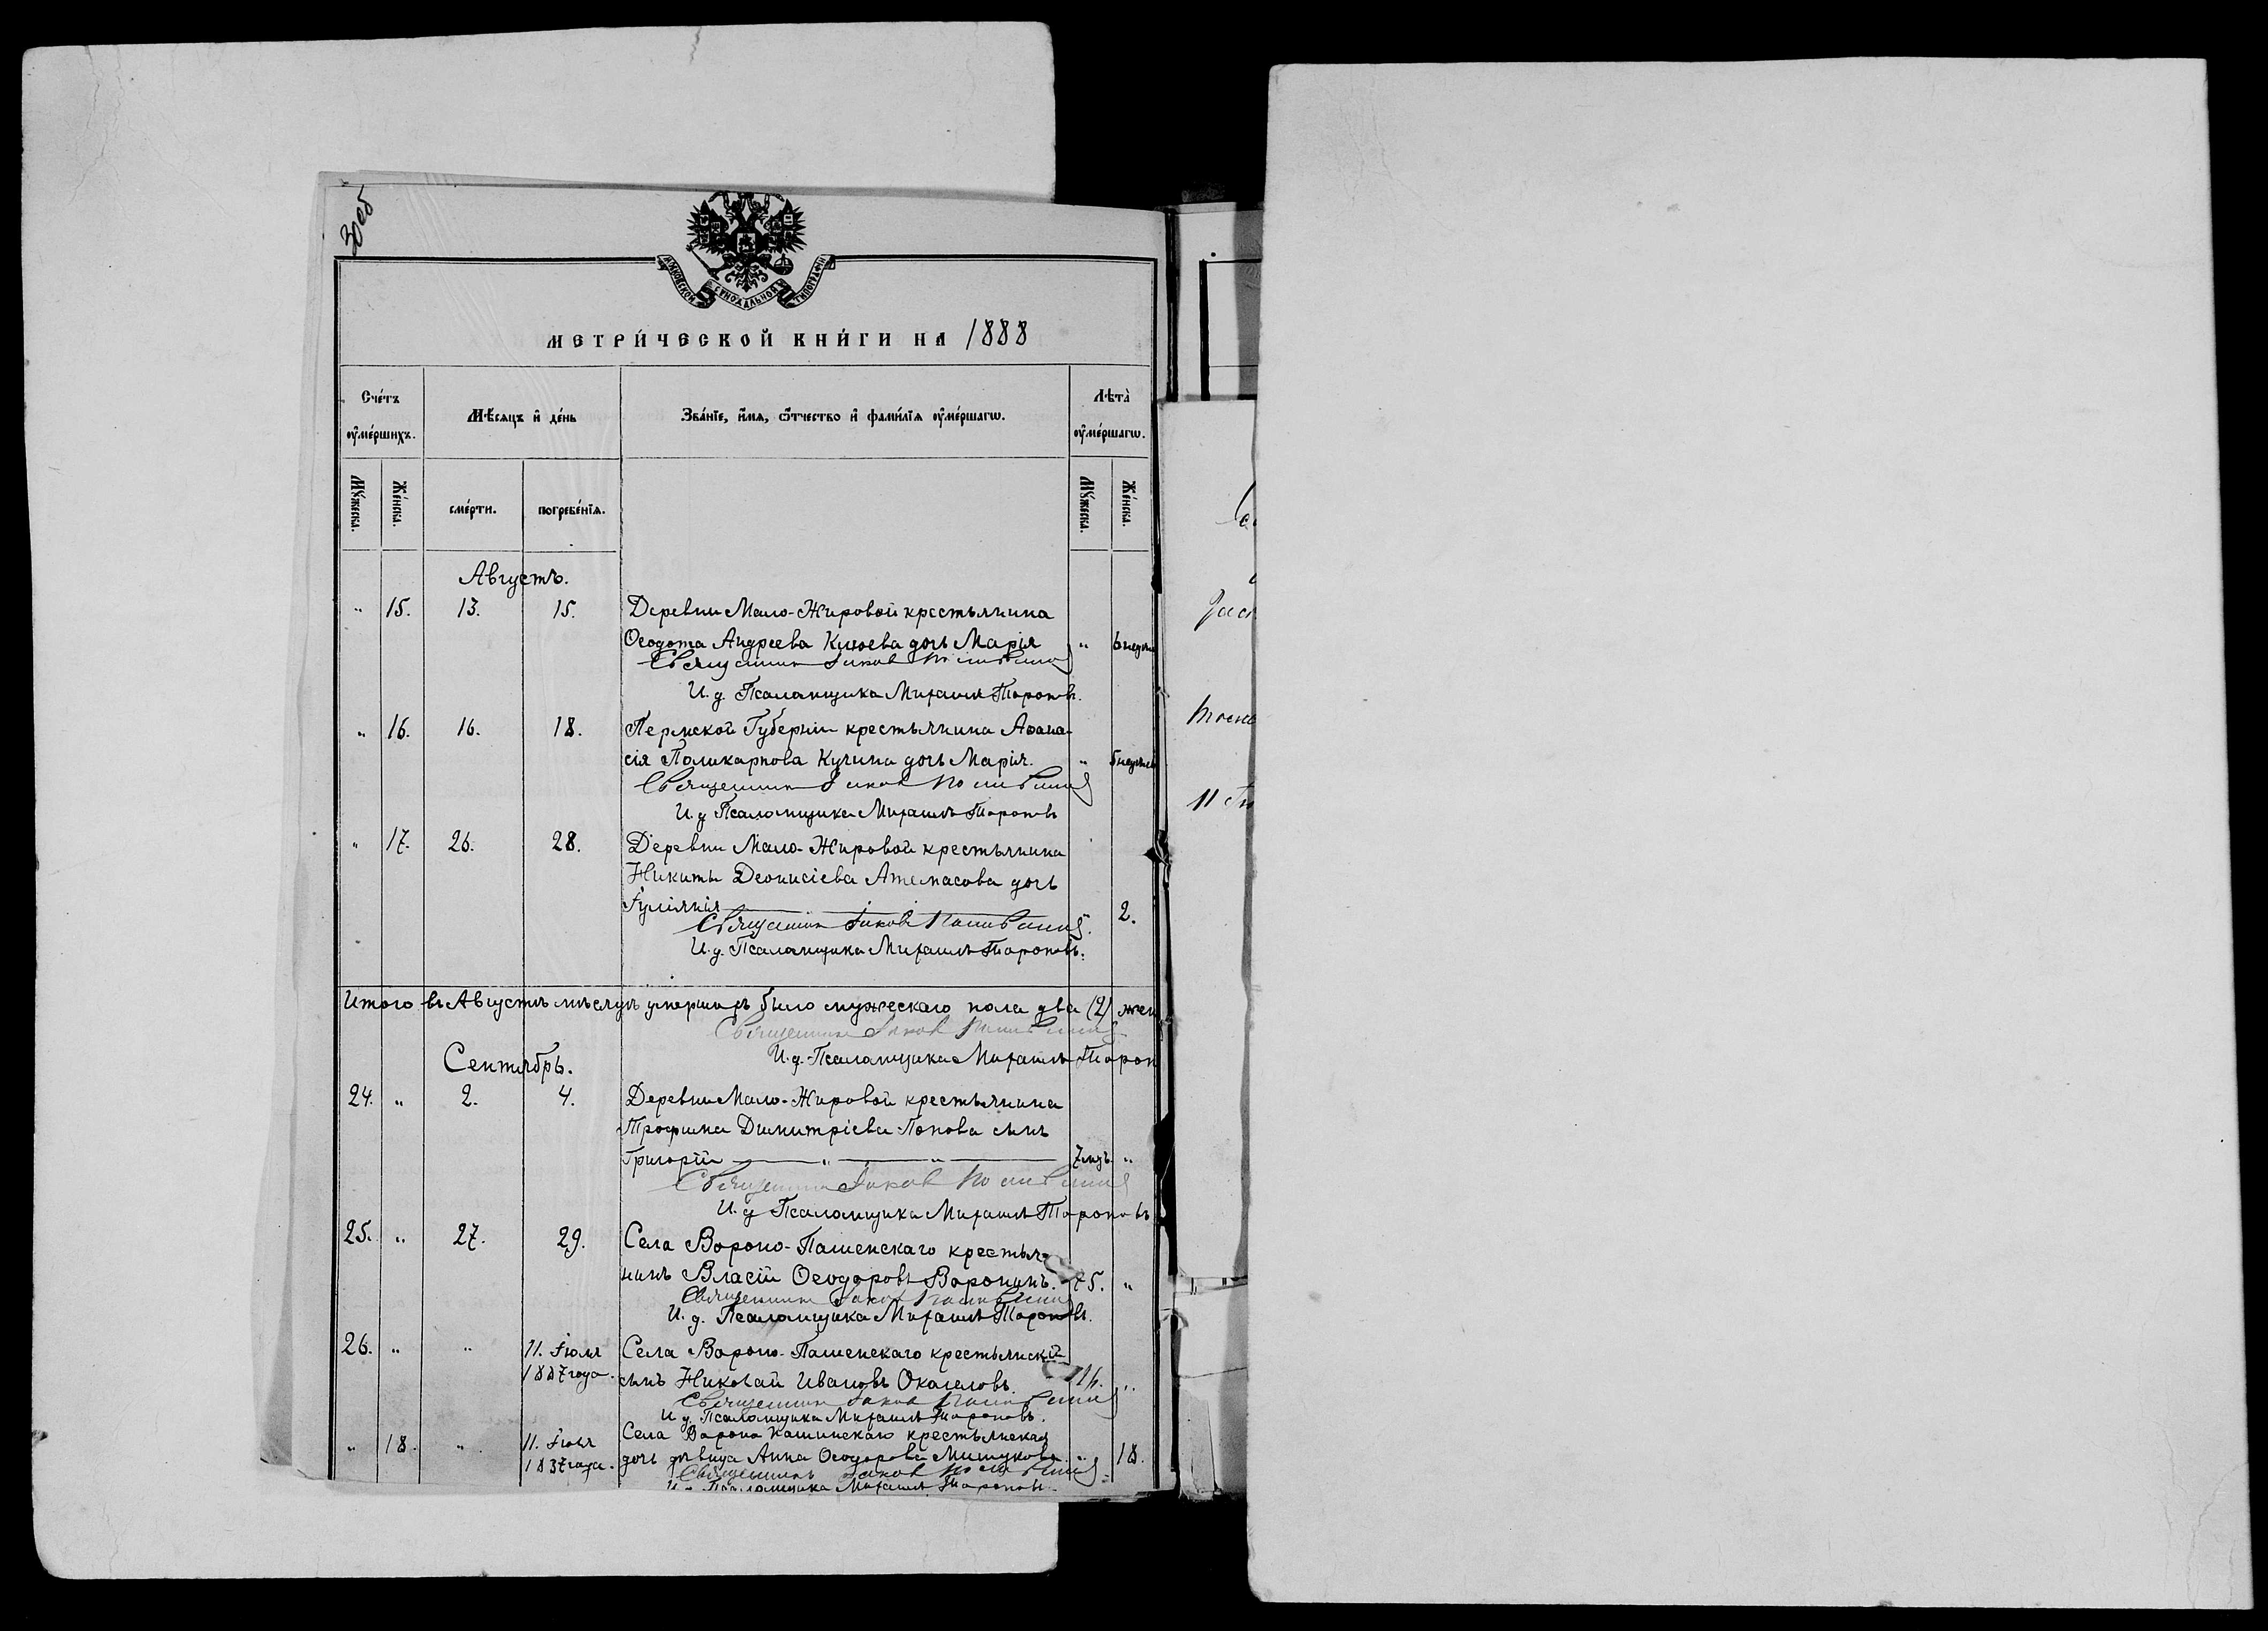 30 об
МОСКОВСКОЙ СѴНОДАЛЬНОЙ ТИПОГРАФІИ
МЕТРИ́ЧЕСКОЙ КНИ́ГИ НА 1888
Сче́тъ ᲂу҆ме́ршихъ.
Мѣ́сяцъ и҆ де́нь
Зва́нїе, и҆́мѧ, ѻ҆́тчество и҆ фами́лїѧ ᲂу҆ме́ршагѡ.
Лѣта̀ ᲂу҆ме́ршагѡ.
Мꙋ́жеска.
Же́нска.
сме́рти.
погребе́нїѧ.
Мꙋ́жеска.
Же́нска.
Августъ.
" 15. 13. 15. Деревни Мало-Жировой крестьянина
Ѳеодота Андреева дочь Марія " 6 недѣль
Священникъ Іаковъ
И. д. Псаломщика Михаилъ Тороповъ.
" 16. 16. 18. Пермской Губерніи крестьянина Аѳана-
сія Поликарпова Кучина дочь Марія. " 5 недѣль
Священникъ Іаковъ
И. д. Псаломщика Михаилъ Тороповъ
" 17. 26. 28. Деревни Мало-Жировой крестьянина
Никиты Деонисіева Атемасова дочь
Іуліянія 2.
Священникъ Іаковъ
И. д. Псаломщика Михаилъ Тороповъ.
Итого въ Августѣ мѣсяцѣ умершихъ было мужескаго пола два (2) жен
Священникъ Іаковъ
И. д. Псаломщика Михаилъ Тороп
Сентябрь.
24. " 2. 4. Деревни Мало-Жировой крестьянина
Трофима Димитріева Попова сынъ
Григорій " " 7 мѣс. "
Священникъ Іаковъ
И. д. Псаломщика Михаилъ Тороповъ
25. " 27. 29. Села Вороно-Пашенскаго крестья-
нинъ Власій Ѳеодоровъ Воронинъ. 75. "
Священникъ Іаковъ
И. д. Псаломщика Михаилъ Тороповъ.
26. " " 11. Іюля Села Вороно-Пашенскаго крестьянскій
1887 года. сынъ Николай Ивановъ "
Священникъ Іаковъ
И. д. Псаломщика Михаилъ Тороповъ.
" 18. " 11. Іюля Села Вороно крестьянская
года. дочь дѣвица Анна Ѳеодорова " 18.
Священникъ Іаковъ
И. д. Псаломщика Михаилъ Тороповъ